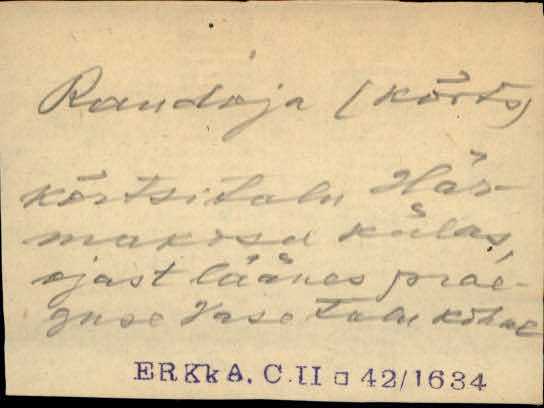 Raudoja (kõrts)
kõrtsitalu Här-
makosu külas,
ojast läänes prae-
guse Vase talu kohal
ERKkA. C II □ 42/1634